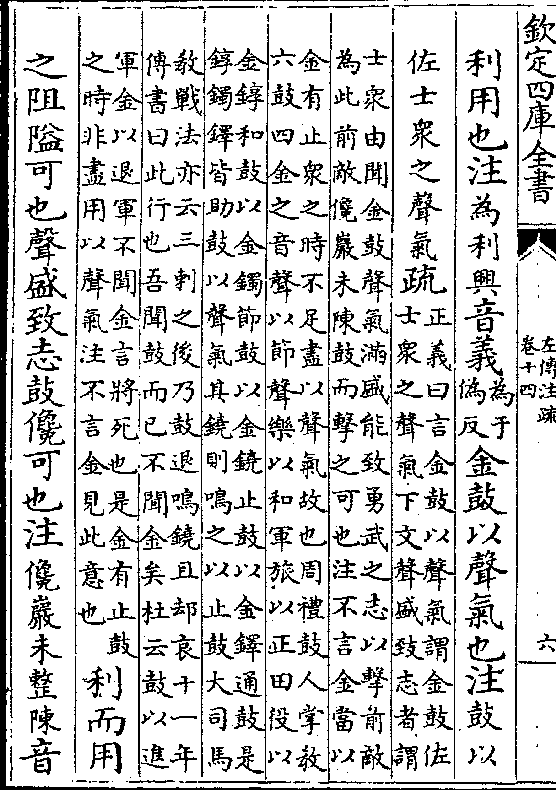 欽定四庫全書
左傳注疏
卷十四
六
利用也注為利興音義為于偽反金鼓以聲氣也注鼓以
佐士衆之聲氣疏正義曰言金鼓以聲氣謂金鼓佐
士衆之聲氣下文聲盛致志者謂
士衆由聞金鼓聲氣滿盛能致勇武之志以擊前敵
為此前敵儳巖未陳鼓而擊之可也注不言金當以
金有止衆之時不足盡以聲氣故也周禮鼓人掌教
六鼓四金之音聲以節聲樂以和軍旅以正田役以
金錞和鼓以金鐲節鼓以金鐃止鼓以金鐸通鼓是
錞鐲鐸皆助鼓以聲氣其鐃則鳴之以止鼓大司馬
教戰法亦云三刺之後乃鼓退鳴鐃且却哀十一年
傳書曰此行也吾聞鼓而已不聞金矣杜云鼓以進
軍金以退軍不聞金言將死也是金有止鼓
之時非盡用以聲氣注不言金見此意也利而用
之阻隘可也聲盛致志鼓儳可也注儳巖未整陳音